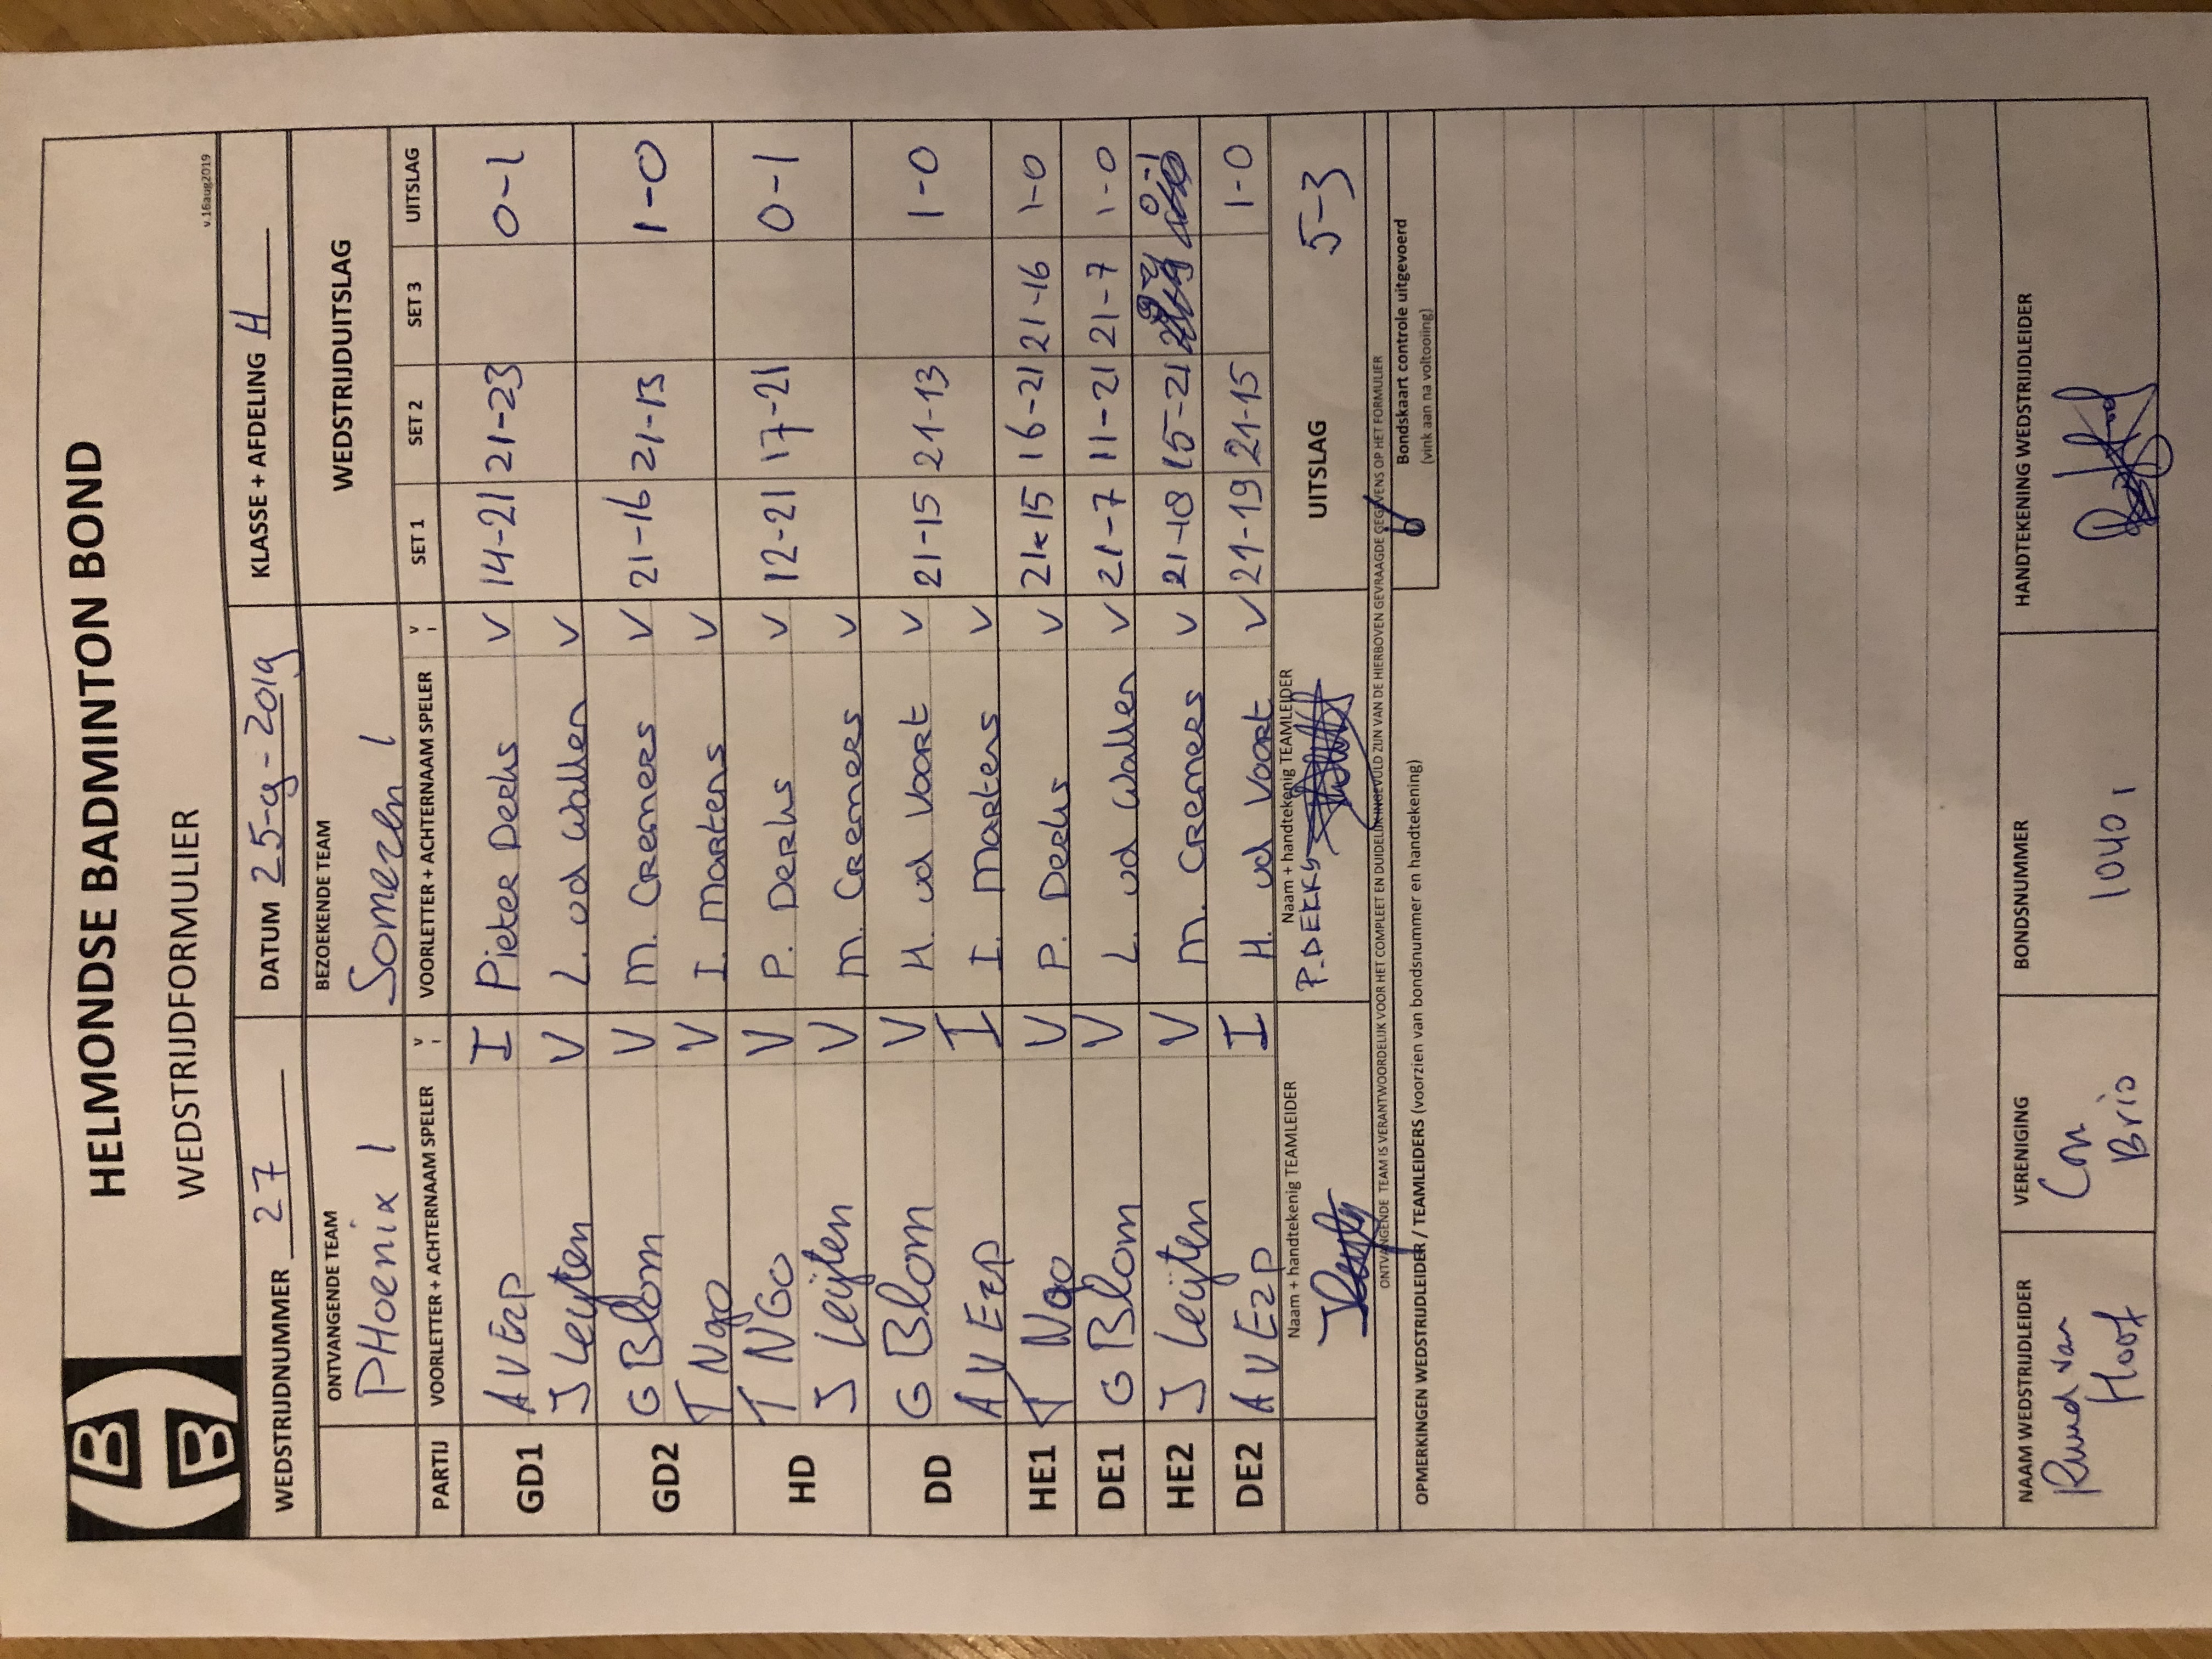 HELMONDSE BADMINTON BOND
WEDSTRIJDFORMULIER
v.16aug2019
WEDSTRIJDNUMMER 27 DATUM 25-9-2019 KLASSE + AFDELING H
ONTVANGENDE TEAM BEZOEKENDE TEAM WEDSTRIJDUITSLAG
PHoenix 1 Someren 1
PARTIJ VOORLETTER + ACHTERNAAM SPELER V I VOORLETTER + ACHTERNAAM SPELER V I SET 1 SET 2 SET 3 UITSLAG
GD1 A V Erp I Pieter Derks V 14-21 21-23 0-1
J Leijten V L. vd Wallen V
GD2 G Blom V M. Cremers V 21-16 21-13 1-0
T Ngo V I. Martens V
HD T NGo V P. Derks V 12-21 17-21 0-1
J Leijten V M. Cremers V
DD G Blom V H. vd Voort V 21-15 21-13 1-0
A V Erp I I. Martens V
HE1 T Ngo V P. Derks V 21-15 16-21 21-16 1-0
DE1 G Blom V L. vd Wallen V 21-7 11-21 21-7 1-0
HE2 J Leijten V M. Cremers V 21-18 15-21 0-1
DE2 A V Erp I H. vd Voort V 21-19 21-15 1-0
Naam + handtekenig TEAMLEIDER Naam + handtekenig TEAMLEIDER UITSLAG 5-3
P. DERKS
ONTVANGENDE TEAM IS VERANTWOORDELIJK VOOR HET COMPLEET EN DUIDELIJK INGEVULD ZIJN VAN DE HIERBOVEN GEVRAAGDE GEGEVENS OP HET FORMULIER
OPMERKINGEN WEDSTRIJDLEIDER / TEAMLEIDERS (voorzien van bondsnummer en handtekening)
Bondskaart controle uitgevoerd
(vink aan na voltooiing)
NAAM WEDSTRIJDLEIDER VERENIGING BONDSNUMMER HANDTEKENING WEDSTRIJDLEIDER
Ruud van Con 10401
Hoof Brio